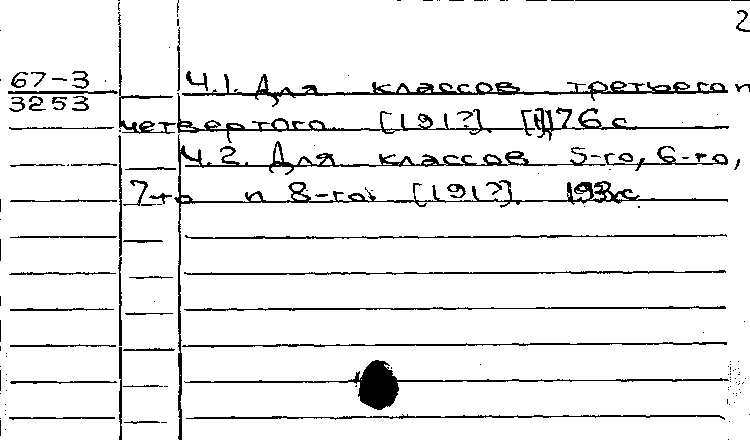 2
67-3
3253
Ч.1. Для классов третьего и
четвертого [191?]. 176 с
Ч.2. Для классов 5-го, 6-го,
7-го и 8-го. [191?].